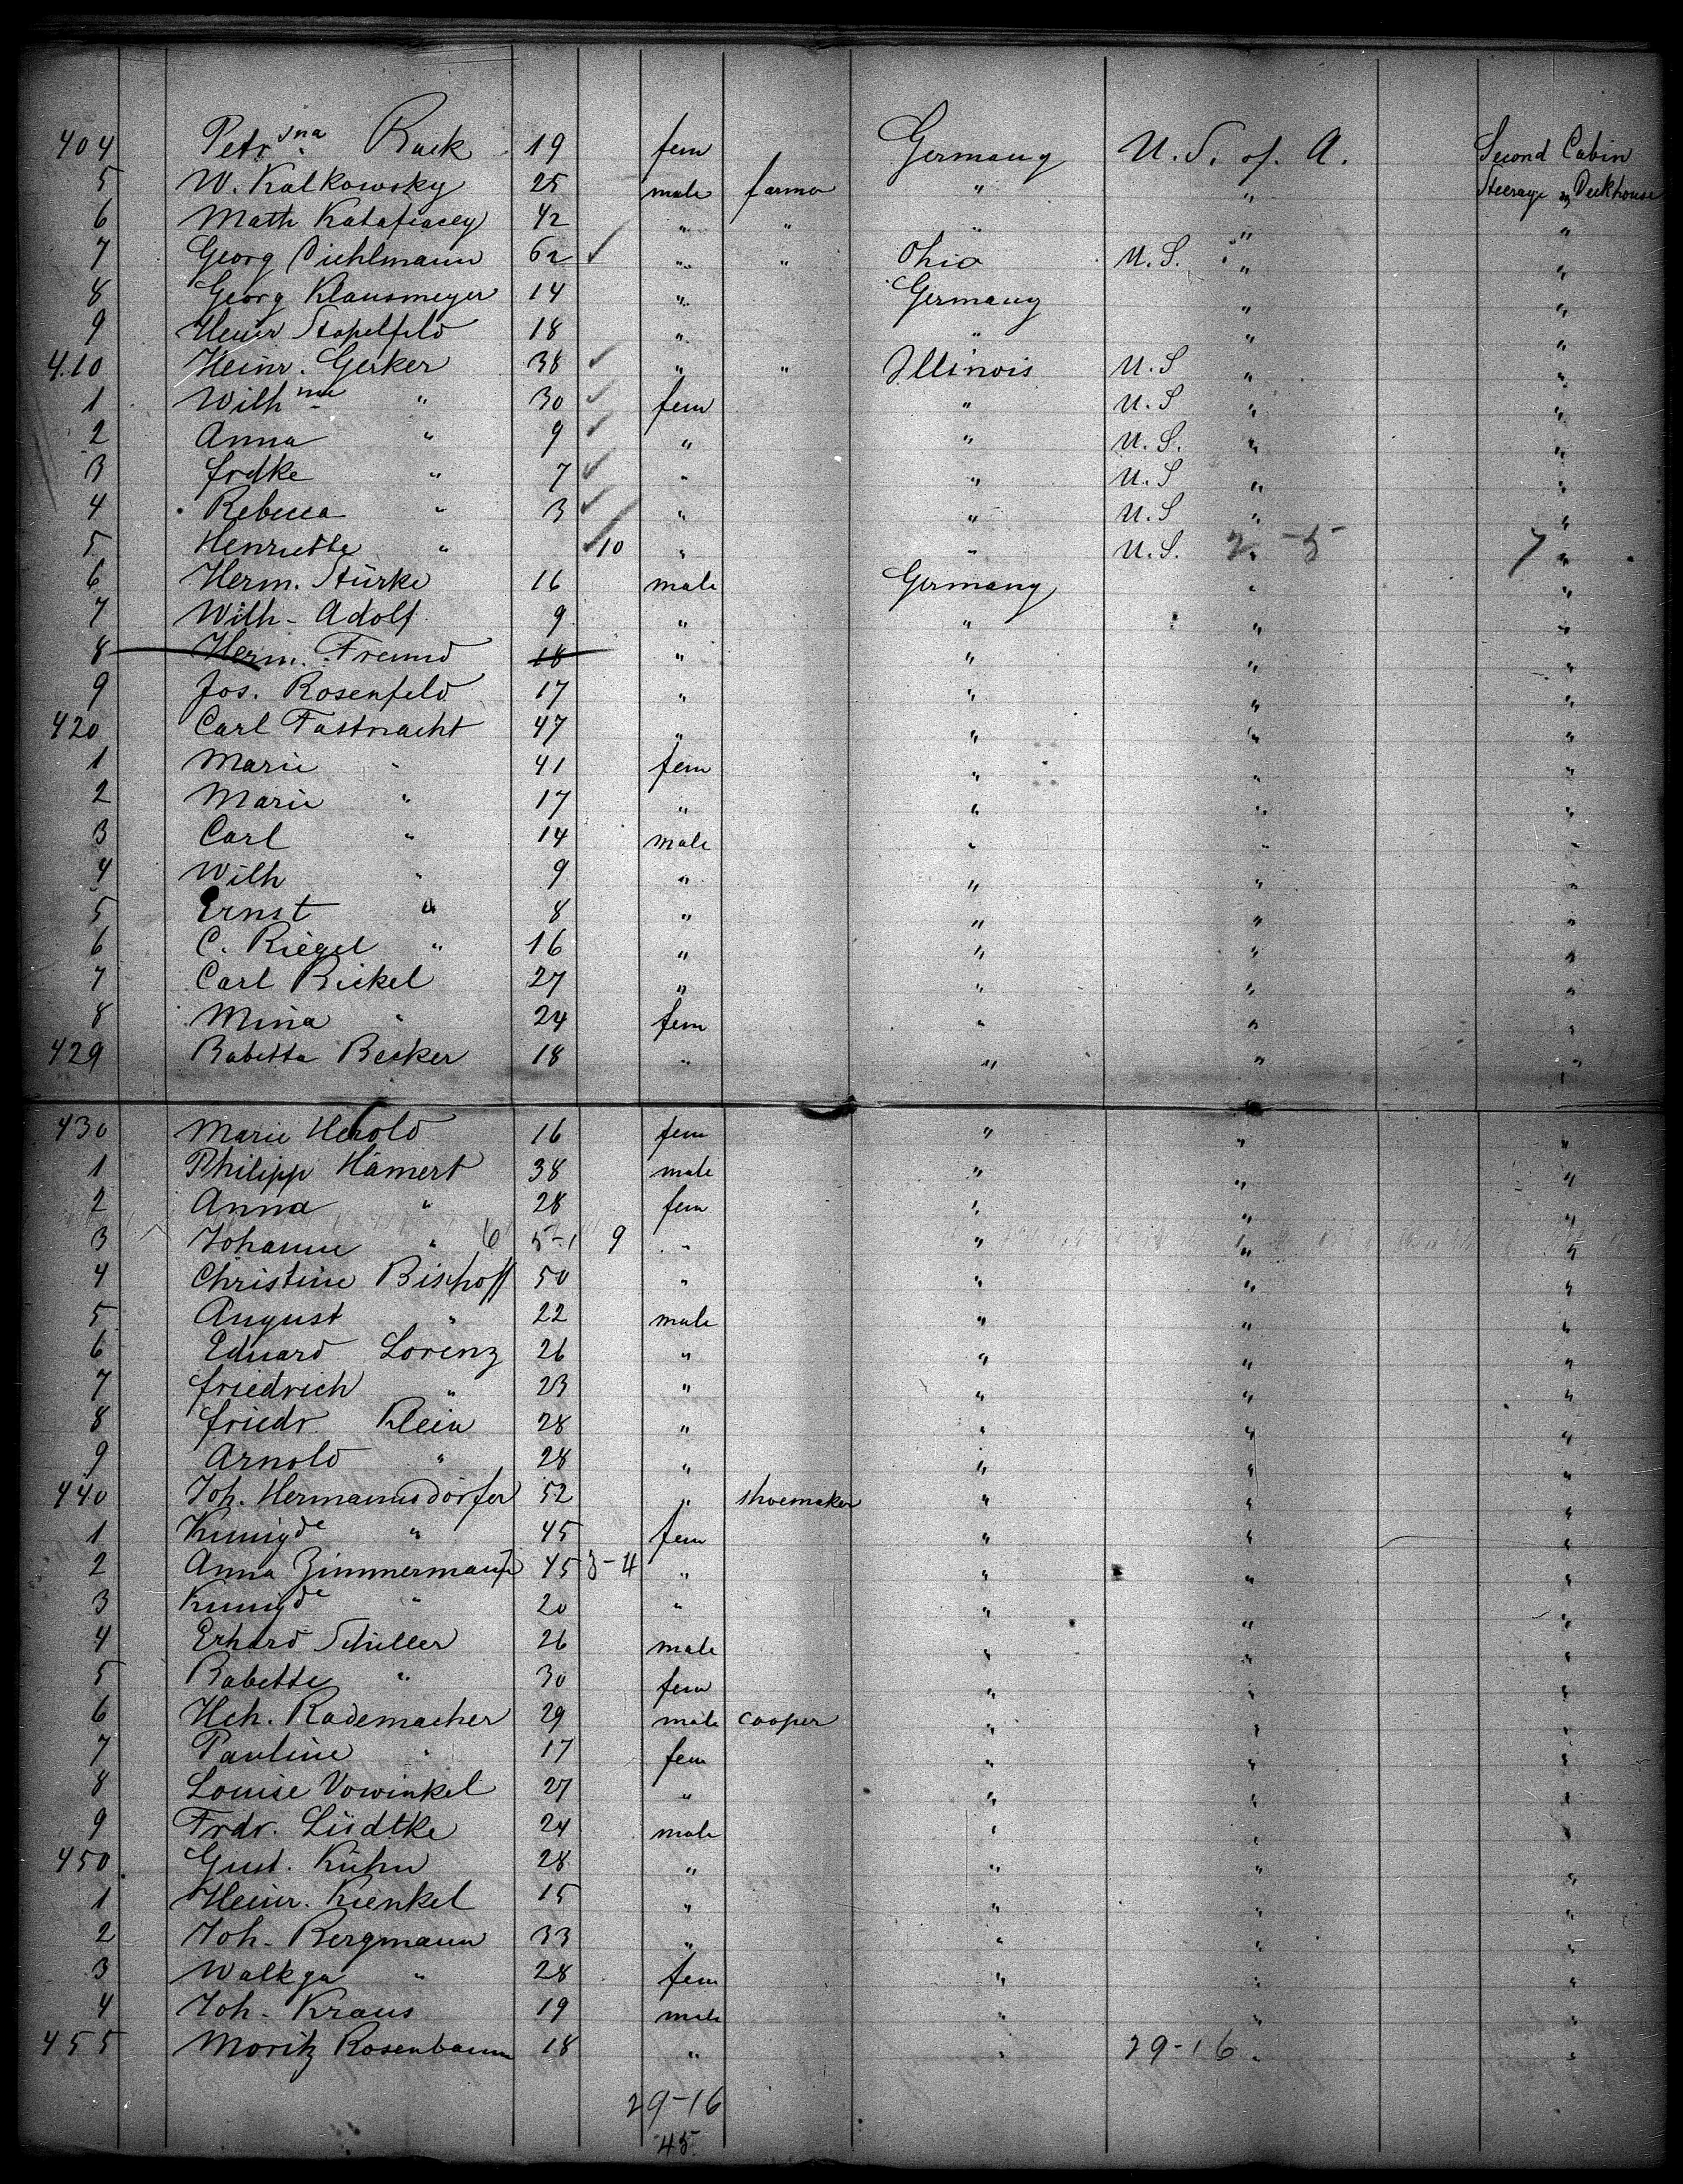 404 Petr ina Back 19 fem Germany U. S. of. A. Second Cabin
5 W. Kalkowsky 25 male farmer " " Steerage Deckhouse
6 Math 42 " " " " "
7 Georg Diehlmann 62 ✓ " " Ohio U. S. " "
8 Georg Klausmeyer 14 " Germany " "
9 Heinr Stapelfeld 18 " " " "
410 Heinr. Gerker 38 ✓ " " Illinois U. S " "
1 Wilh me " 30 ✓ fem " U. S " "
2 Anna " 9 ✓ " " U. S. " "
3 frdke " 7 ✓ " " U. S " "
4 Rebecca " 3 ✓ " " U. S " "
5 Henriette " ✓ 10 " " U. S. " 2-5 7 "
6 Herm. Stürke 16 male Germany " "
7 Wilh - Adolf 9 " " " "
8 Herm. Freund 18 " " " "
9 Jos. Rosenfeld 17 " " " "
420 Carl Fastnacht 47 " " " "
1 Marie " 41 fem " " "
2 Marie " 17 " " " "
3 Carl " 14 male " " "
4 Wilh " 9 " " " "
5 Ernst " 8 " " " "
6 C. Riegel " 16 " " " "
7 Carl Bickel 27 " " " "
8 Mina " 24 fem " " "
429 Babetta Becker 18 " " " "
430 Marie Herold 16 fem " " "
1 Philipp Hämert 38 male " " "
2 Anna " 28 fem " " "
3 Johanne " 6 5-1 9 " " " "
4 Christine Bischoff 50 " " " "
5 August " 22 male " " "
6 Eduard Lorenz 26 " " " "
7 friedrich " 23 " " " "
8 friedr. Klein 28 " " " "
9 Arnold " 28 " " " "
440 Joh. Hermannsdörfer 52 " shoemaker " " "
1 Kunigde " 45 fem " " "
2 Anna Zimmermann 45 3-4 " " " "
3 Kunigde " 20 " " " "
4 Erhard Schiller 26 male " " "
5 Babette " 30 fem " " "
6 Hch. Rademacher 29 male cooper " " "
7 Pauline " 17 fem " " "
8 Louise Vowinkel 27 " " " "
9 Frdr. Lüdtke 24 male " " "
450 Gust. Kühn 28 " " " "
1 Heinr. Kienkel 15 " " " "
2 Joh - Bergmann 33 " " " "
3 Walkga " 28 fem " " "
4 Joh - Kraus 19 male " " "
455 Moritz Rosenbaum 18 " " 29-16 " "
29-16
45